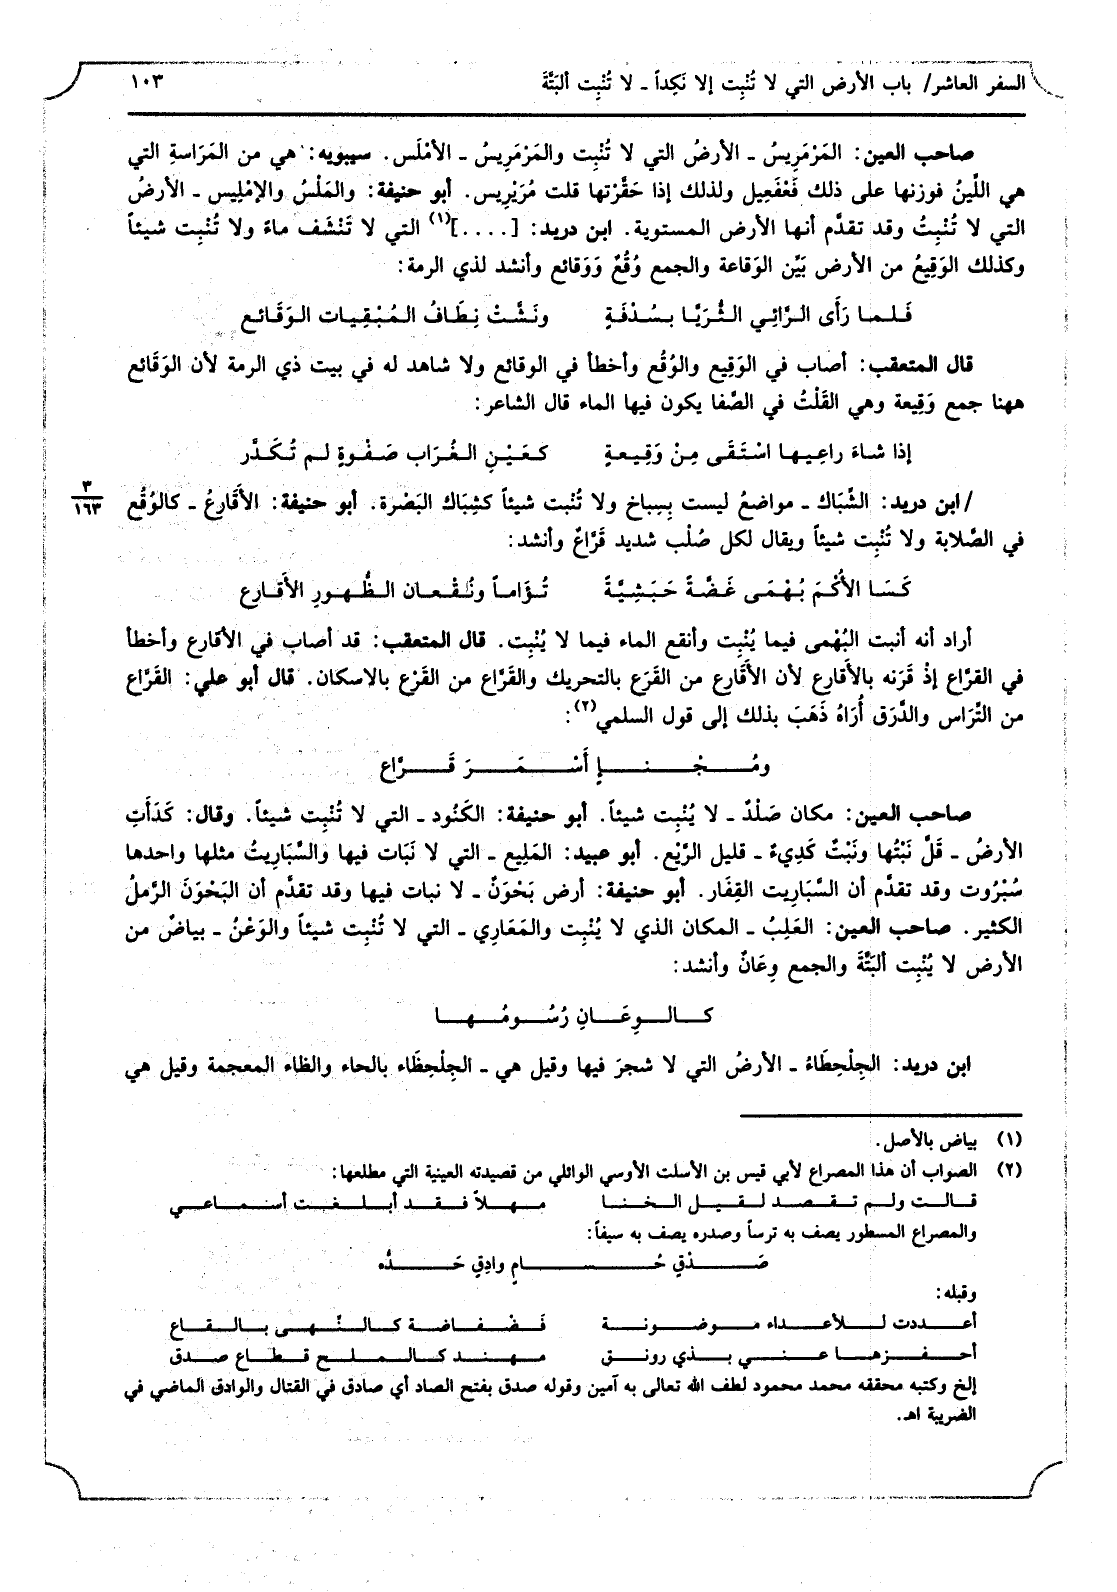 السفر العاشر/ باب الأرض التي لا تُنْبِت إلا نَكِداً ـ لا تُنْبِت ألبَتَّةَ ١٠٣
صاحب العين: المَرْمَرِيسُ ـ الأرضُ التي لا تُنْبِت والمَرْمَرِيسُ ـ الأمْلَس. سيبويه: هي من المَرَاسةِ التي
هي اللِّينُ فوزنها على ذلك فَعْفَعِيل ولذلك إذا حَقَّرْتها قلت مُرَيْرِيس. أبو حنيفة: والمَلْسُ والإمْلِيس ـ الأرضُ
التي لا تُنْبِتُ وقد تقدَّم أنها الأرض المستوية. ابن دريد: [....](١) التي لا تَنْشَف ماءً ولا تُنْبِت شيئاً
وكذلك الوَقِيعُ من الأرض بَيِّن الوَقاعة والجمع وُقُعٌ وَوَقائع وأنشد لذي الرمة:
فَلما رَأى الرَّائِي الثُّرَيَّا بسُدْفَةٍ ونَشَّتْ نِطَافُ المُبْقِيات الوَقَائع
قال المتعقب: أصاب في الوَقِيع والوُقُع وأخطأ في الوقائع ولا شاهد له في بيت ذي الرمة لأن الوَقَائع
ههنا جمع وَقِيعة وهي القَلْتُ في الصَّفا يكون فيها الماء قال الشاعر:
إذا شاءَ راعِيها اسْتَقَى مِنْ وَقِيعةٍ كعَيْنِ الغُرَاب صَفْوةٍ لم تُكَدَّر
/ابن دريد: الشِّبَاك ـ مواضعُ ليست بِسِباخ ولا تُنْبت شيئاً كشِبَاك البَصْرة. أبو حنيفة: الأقَارِعُ ـ كالوُقُع
٣
١٦٣
في الصَّلابة ولا تُنْبِت شيئاً ويقال لكل صُلْب شديد قَرَّاعٌ وأنشد:
كَسَا الأُكْمَ بُهْمَى غَضَّةً حَبَشِيَّةً تُؤَاماً ونُقْعان الظُّهورِ الأَقارِع
أراد أنه أنبت البُهْمى فيما يُنْبِت وأنقع الماء فيما لا يُنْبِت. قال المتعقب: قد أصاب في الأقارع وأخطأ
في القرَّاع إذْ قَرَنه بالأَقارع لأن الأَقارع من القَرَع بالتحريك والقَرَّاع من القَرْع بالاسكان. قال أبو علي: القَرَّاع
من التِّرَاس والدَّرَق أُرَاهُ ذَهَبَ بذلك إلى قول السلمي(٢):
ومُجْنإٍ أَسْمَرَ قَرَّاع
صاحب العين: مكان صَلْدٌ ـ لا يُنْبِت شيئاً. أبو حنيفة: الكَنُود ـ التي لا تُنْبِت شيئاً. وقال: كَدَأَتِ
الأرضُ ـ قَلَّ نَبْتُها ونَبْتٌ كَدِيءٌ ـ قليل الرَّيْع. أبو عبيد: المَلِيع ـ التي لا نَبَات فيها والسَّبَارِيتُ مثلها واحدها
سُبْرُوت وقد تقدَّم أن السَّبَاريت القِفَار. أبو حنيفة: أرض بَحْوَنٌ ـ لا نبات فيها وقد تقدَّم أن البَحْوَنَ الرَّملُ
الكثير. صاحب العين: العَلِبُ ـ المكان الذي لا يُنْبِت والمَعَارِي ـ التي لا تُنْبِت شيئاً والوَعْنُ ـ بياضٌ من
الأرض لا يُنْبِت ألبَتَّةَ والجمع وِعَانٌ وأنشد:
كالوِعَانِ رُسُومُها
ابن دريد: الجِلْحِطَاءُ ـ الأرضُ التي لا شجرَ فيها وقيل هي ـ الجِلْحِظَاء بالحاء والظاء المعجمة وقيل هي
(١) بياض بالأصل.
(٢) الصواب أن هذا المصراع لأبي قيس بن الأسلت الأوسي الوائلي من قصيدته العينية التي مطلعها:
قالت ولم تقصد لقيل الخنا مهلاً فقد أبلغت أسماعي
والمصراع المسطور يصف به ترساً وصدره يصف به سيفاً:
صَدْقٍ حُسامٍ وادِقٍ حَدُّه
وقبله:
أعددت للأعداء موضونة فَضْفَاضة كالنَّهى بالقاع
أحفزها عني بذي رونق مهند كالملح قطاع صدق
إلخ وكتبه محققه محمد محمود لطف الله تعالى به آمين وقوله صدق بفتح الصاد أي صادق في القتال والوادق الماضي في
الضريبة اهـ.